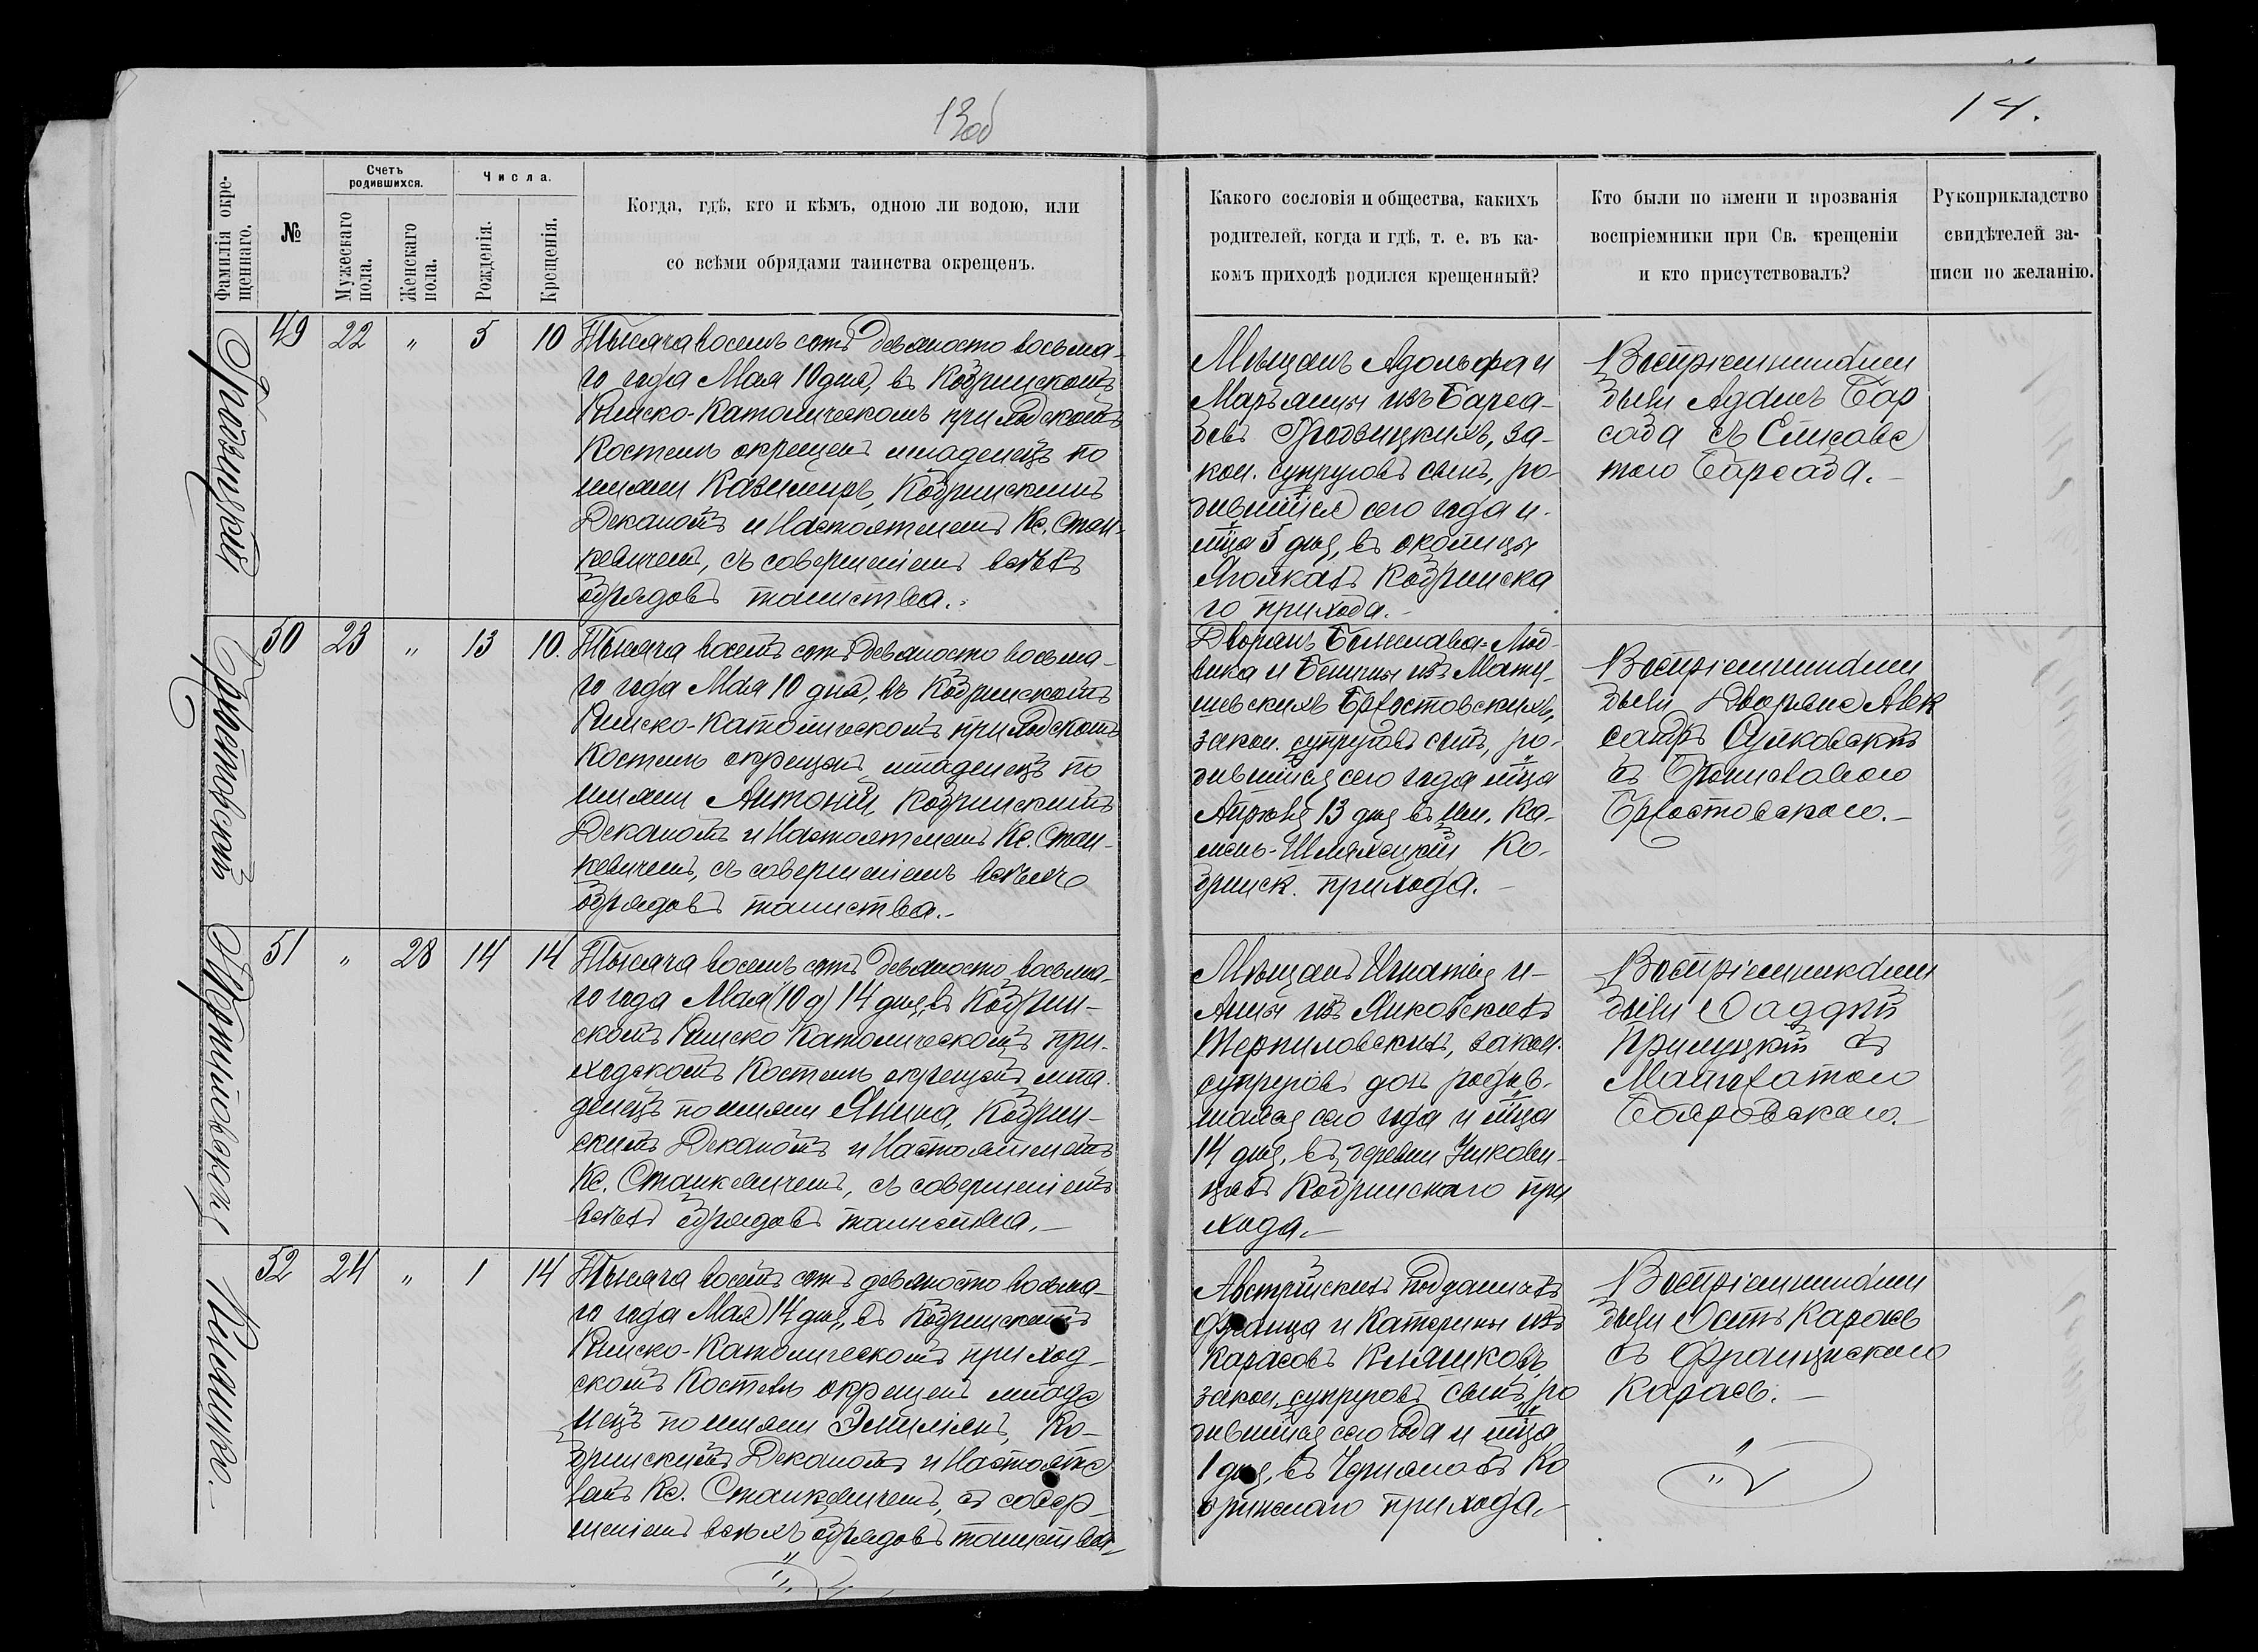 13об
14.
Фамилія окре-
щеннаго.
№
Счетъ
родившихся.
Мужескаго
пола.
Женскаго
пола.
Числа.
Рожденія.
Крещенія.
Когда, гдѣ, кто и кѣмъ, одною ли водою, или
со всѣми обрядами таинства окрещенъ.
Какого сословія и общества, какихъ
родителей, когда и гдѣ, т. е. въ ка-
комъ приходѣ родился крещенный?
Кто были по имени и прозванія
воспріемники при Св. крещеніи
и кто присутствовалъ?
Рукоприкладство
свидѣтелей за-
писи по желанію.
49 22 „ 5 10
Тысяча восемь сотъ девяносто восьма-
го года Мая 10 дня, въ Кобринскомъ
Римско-Католическомъ приходскомъ
Костелѣ окрещенъ младенецъ по
имени Казимиръ, Кобринскимъ
Деканомъ и Настоятелемъ Кс. Стан-
кевичемъ, съ совершеніемъ всѣхъ
обрядовъ таинства.
Мѣщанъ Адольфа и
Марьянны изъ Барса-
бовъ, за-
кон. супруговъ сынъ, ро-
дившійся сего года и
мца 5 дня, въ околицы
Кобринска
го прихода.
Воспріемниками
были Адамъ Бар
саба съ Елисаве
тою Барсаба.
Бржостовскій
50 23 „ 13 10.
Тысяча восемь сотъ девяносто восьма-
го года Мая 10 дня, въ Кобринскомъ
Римско-Католическомъ приходскомъ
Костелѣ окрещенъ младенецъ по
имени Антоній, Кобринскимъ
Деканомъ и Настоятелемъ Кс. Стан-
кевичемъ, съ совершеніемъ всѣхъ
обрядовъ таинства.
Дворянъ Болеслава-Люд-
вика и изъ Мату-
шевскихъ Бржостовскихъ,
закон. супруговъ сынъ, ро-
дившійся сего года мца
Апрѣля 13 дня въ им. Ка-
мень-Шляхецкій Ко-
бринск. прихода.
Воспріемниками
были Дворяне Алек
сандръ Сулковскій
съ Брониславою
Бржостовскою.
Терпиловская
51 „ 28 14 14
Тысяча восемь сотъ девяносто восьма-
го года Мая (10 д) 14 дня, въ Кобрин-
скомъ Римско Католическомъ при-
ходскомъ Костелѣ окрещенъ мла-
денецъ по имени Янина, Кобрин-
скимъ Деканомъ и Настоятелемъ
Кс. Станкевичемъ, съ совершеніемъ
всѣхъ обрядовъ таинства.
Мѣщанъ Игнатія и
Анны изъ Янковскихъ
Терпиловскихъ, закон.
супруговъ дочь родив-
шаяся сего года и мца
14 дня, въ деревни
Кобринскаго при
хода.
Воспріемниками
были Фаддей
съ
Малгожатою
52 24 „ 1 14
Тысяча восемь сотъ девяносто восьма-
го года Мая 14 дня, въ Кобринскомъ
Римско-Католическомъ приход-
скомъ Костелѣ окрещенъ младе
нецъ по имени Эмиліянъ, Ко-
бринскимъ Деканомъ и Настояте
лемъ Кс. Станкевичемъ, съ совер-
шеніемъ всѣхъ обрядовъ таинства.
Австрійскихъ подданныхъ
Франца и Катерины изъ
Карасовъ
закон. супруговъ сынъ, ро
дившійся сего года и мца
1 дня, въ Ко
бринскаго прихода.
Воспріемниками
были Осипъ Карась
съ Францискою
Карась.